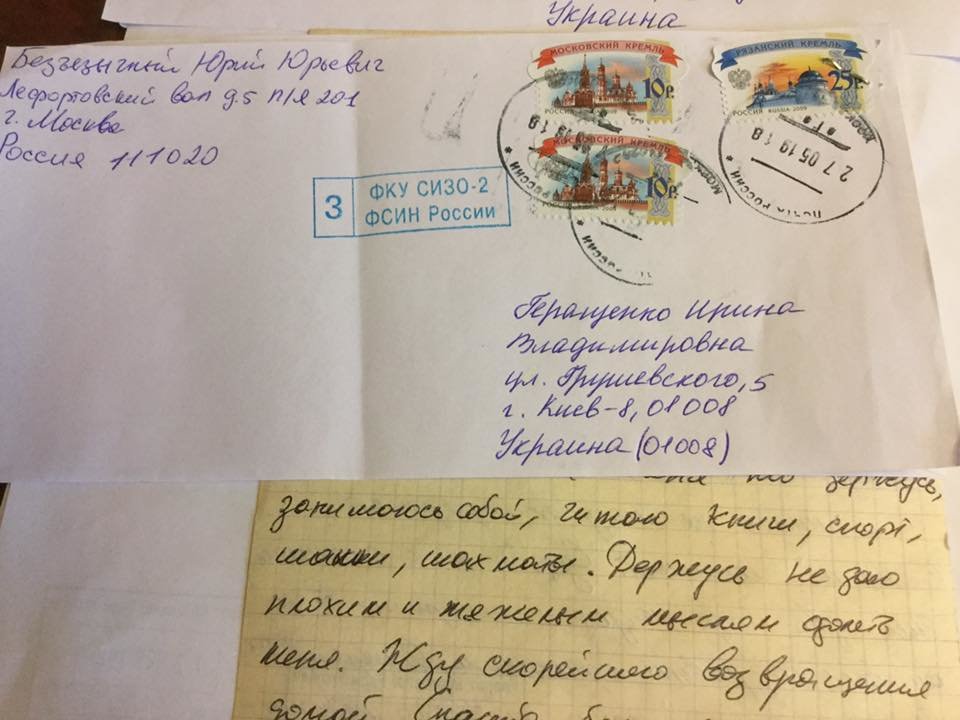 Украина
Безъязычный Юрий Юрьевич
Лефортовский вал д.5 п/я 201
г. Москва
Россия 111020
МОСКОВСКИЙ КРЕМЛЬ
10р.
РЯЗАНСКИЙ КРЕМЛЬ
25р.
РОССИЯ RUSSIA·2009
МОСКОВСКИЙ КРЕМЛЬ
10р.
27 05 19 18
ПОЧТА РОССИИ
05 19 18
РОССИИ
РОССИИ
3
ФКУ СИЗО-2
ФСИН России
Геращенко Ирина
Владимировна
ул. Грушевского, 5
г. Киев-8, 01008
Украина (01008)
держусь,
занимаюсь собой, читаю книги, спорт,
шашки, шахматы. Держусь не даю
плохим и тяжелым мыслям одолеть
меня. Жду скорейшего возвращения
домой